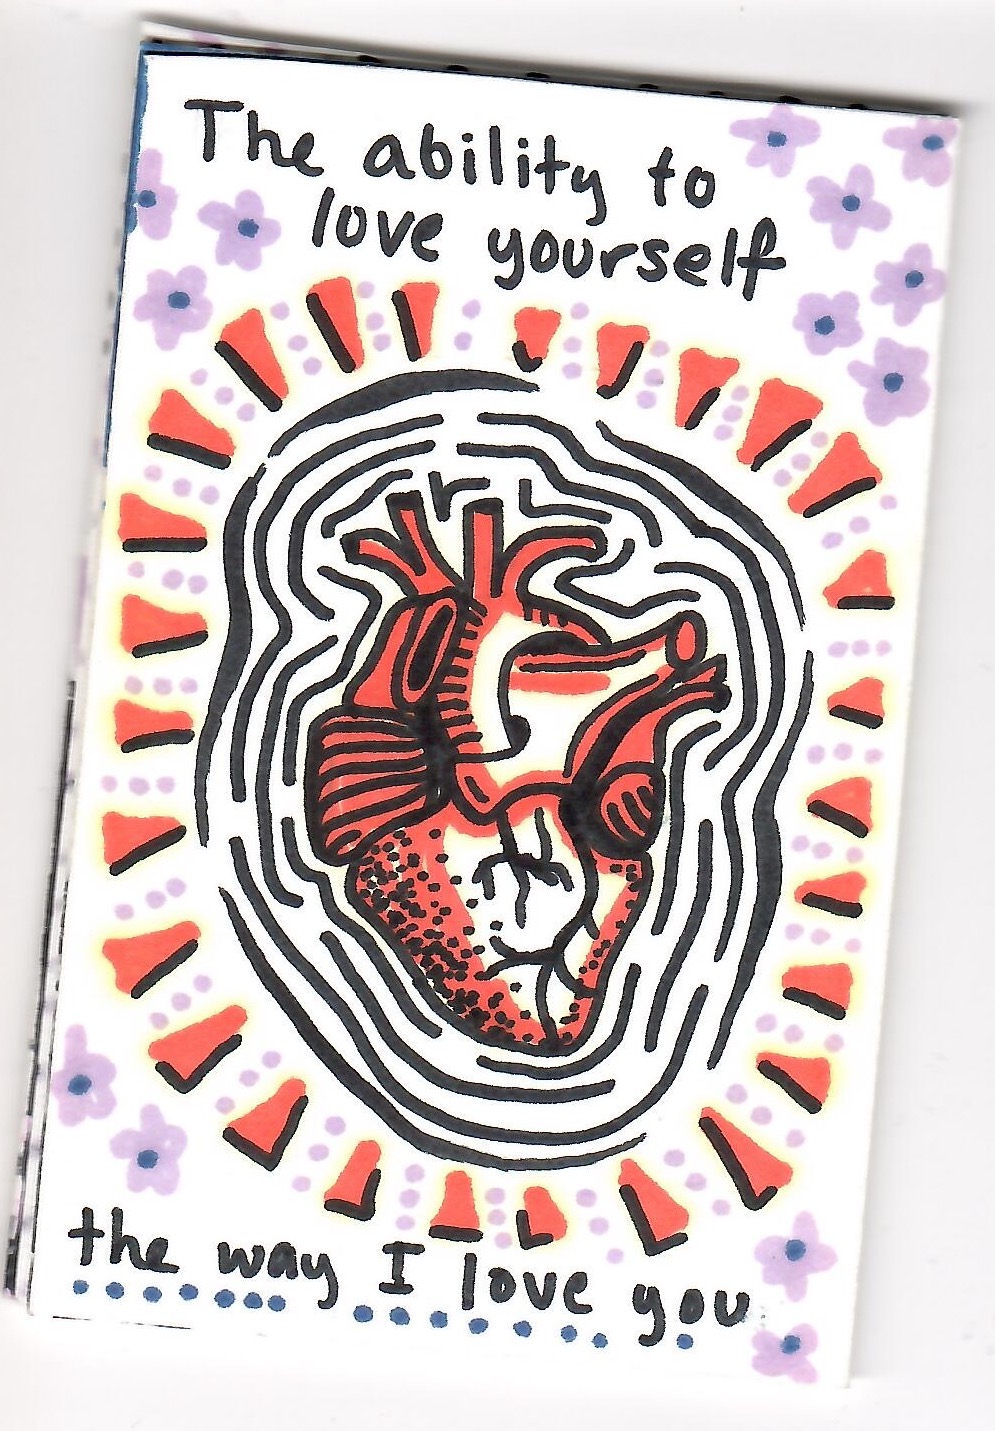 The ability to
love yourself
the way I love you